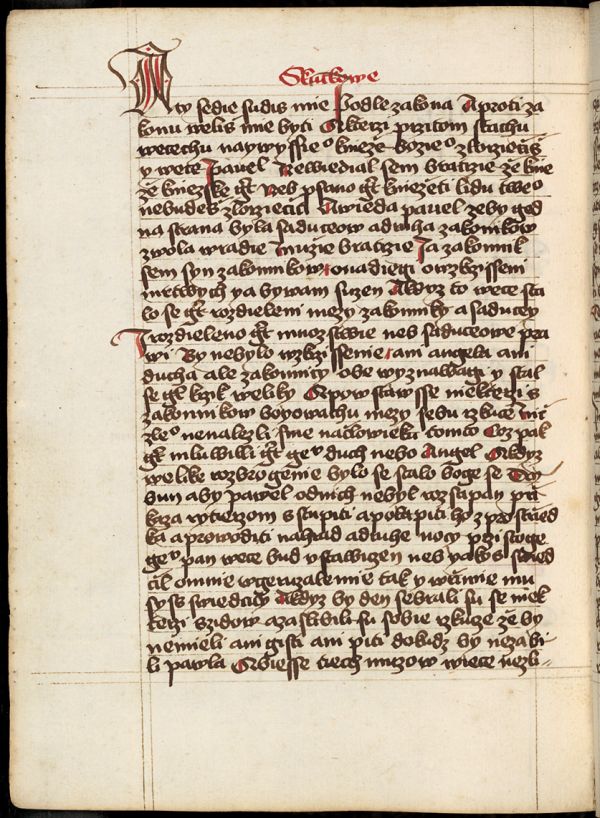 Skutkowe
A ty sedie sudis mie Podle zakona A proti za
konu welis mie byti A kterzi przitom stachu
wetechu naywyssieº knieze bozieº zlorzecziss
y wece pavel Newiediel sem bratrzie ze knie
ze knieʒske gt Neb psano gt kniezeti lidu tweº
nebudes zlorzeciti A wieda pavel zeby ged
na strana byla saduceow a druha zakonikow
zwola wradie Muzie bratrzie Ja zakonnik
sem syn zakonnikow onadiegi o wzkrzisseni
mrtwych ya bywam suzen A kdyz to wece sta
lo se gt rozdieleni mezy zakonniky a saducey
I rozdieleno gt mnozstwie neb saduceowe pra
wi By nebylo wzkrzissenie ani angela ani
ducha ale zakonnicy obe wyznawagi y stal
se gt krzik weliky A powstawsse niekterzi s
zakonnikow boyowachu mezy sebu rzkuce Nic
zleº nenalezli sme naclowieku tomto Coz pak
gt mluwili gt geᵘ duch nebo Angel A kdyz
welike rozbrogenie bylo se stalo boge se Try
bun aby pawel odnich nebyl rozsapan przi
kaza rytierzom sstupiti a pochapiti ho z prostried
ka a prowoditi nahrad a druhe nocy przi stoge
geᵘ pan wece bud ustawizen neb yakos swied
cil omnie wgeruzalemie tak y wrzimie mu
sys swiedciti A kdyz by den sebrali su se niek
terzi zzidow a zaslibili su sobie rzkuce ze by
nemieli ani gisti ani piti dokudz by nezabi
li pawla A biesse tiech muzow wiece nezli